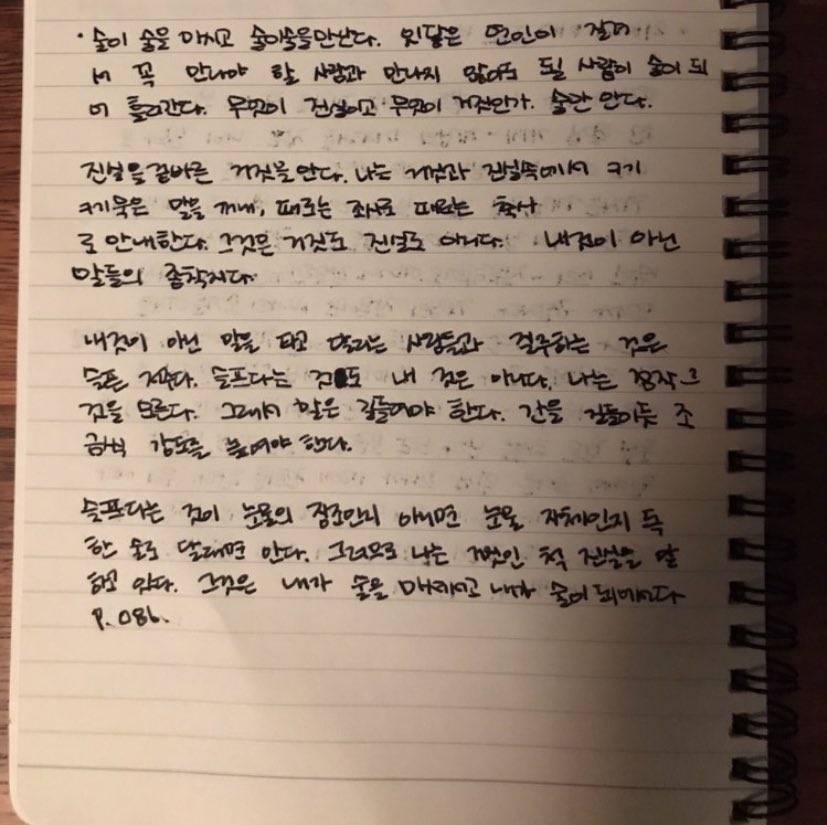 · 술이 술을 마시고 술이술을만난다. 잇닿은 연인이
서 꼭 만나야 할 사람과 만나지 않아도 될 사람이 술이 되
어 흘러간다. 무엇이 진실이고 무엇이 거짓인가. 술만 안다.
진실을 거짓을 안다. 나는 거짓과 진실속에서
말을 꺼내, 때로는 좌로 때로는
로 안내한다. 그것은 거짓도 진실도 아니다. 내것이 아닌
말들의 종착지다.
내것이 아닌 말을 타고 달리는 사람들과 질주하는 것은
슬픈 슬프다는 것도 내 것은 아니다. 나는 정작 그
것을 모른다. 그래서 말은 길들여야 한다. 간을 길들이듯 조
금씩 강도를 높여야 한다.
슬프다는 것이 눈물의 전조인지 아니면 눈물 자체인지 독
한 술로 달래면 안다. 그러므로 나는 거짓인 척 진실을 말
하고 있다. 그것은 내가 술을 마시고 내가 술이
P. 086.